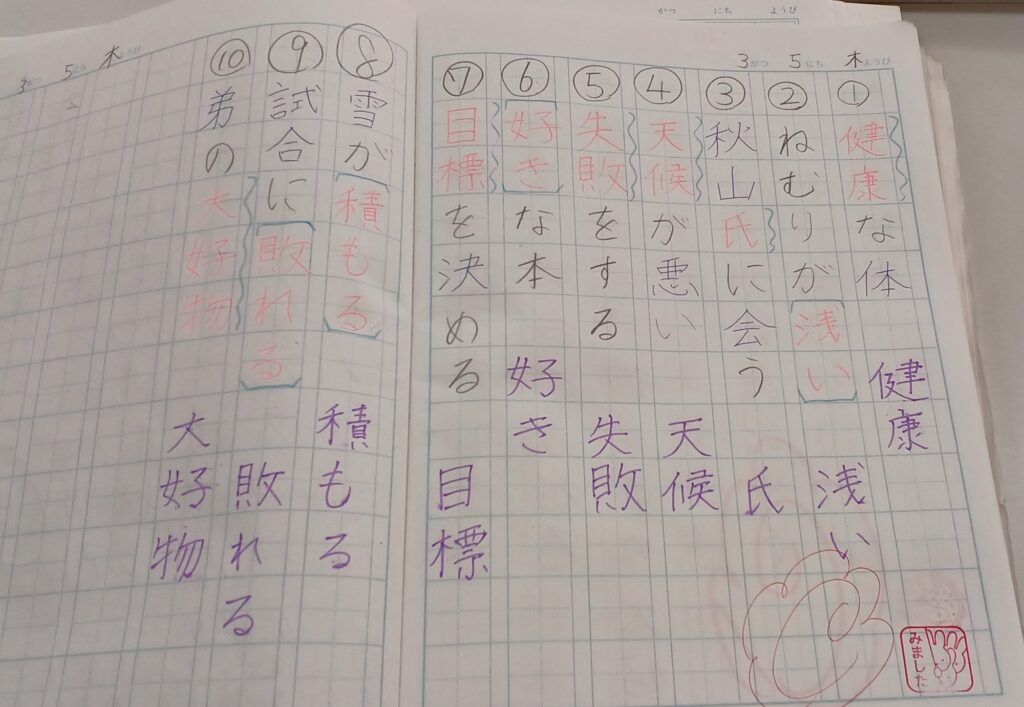 がつ にち ようび
3がつ 5にち 木ようび
①健康な体 健康
②ねむりが浅い 浅い
③秋山氏に会う 氏
④天候が悪い 天候
⑤失敗をする 失敗
⑥好きな本 好き
⑦目標を決める 目標
みました
3がつ 5にち 木ようび
⑧雪が積もる 積もる
⑨試合に敗れる 敗れる
⑩弟の大好物 大好物